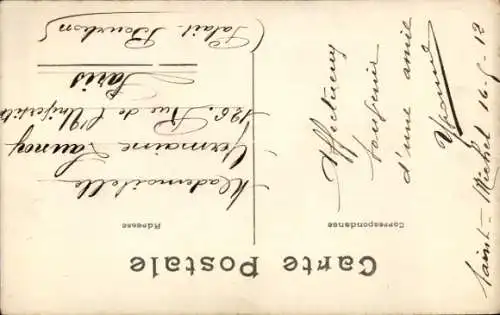 Carte Postale
Correspondance
Adresse
Affectueux
souvenir
d'une amie
Yvonne
Saint-Michel 16-5-12
Mademoiselle
Germaine Launoy
126. Rue de l'Université
Paris
(Palais-Bourbon)